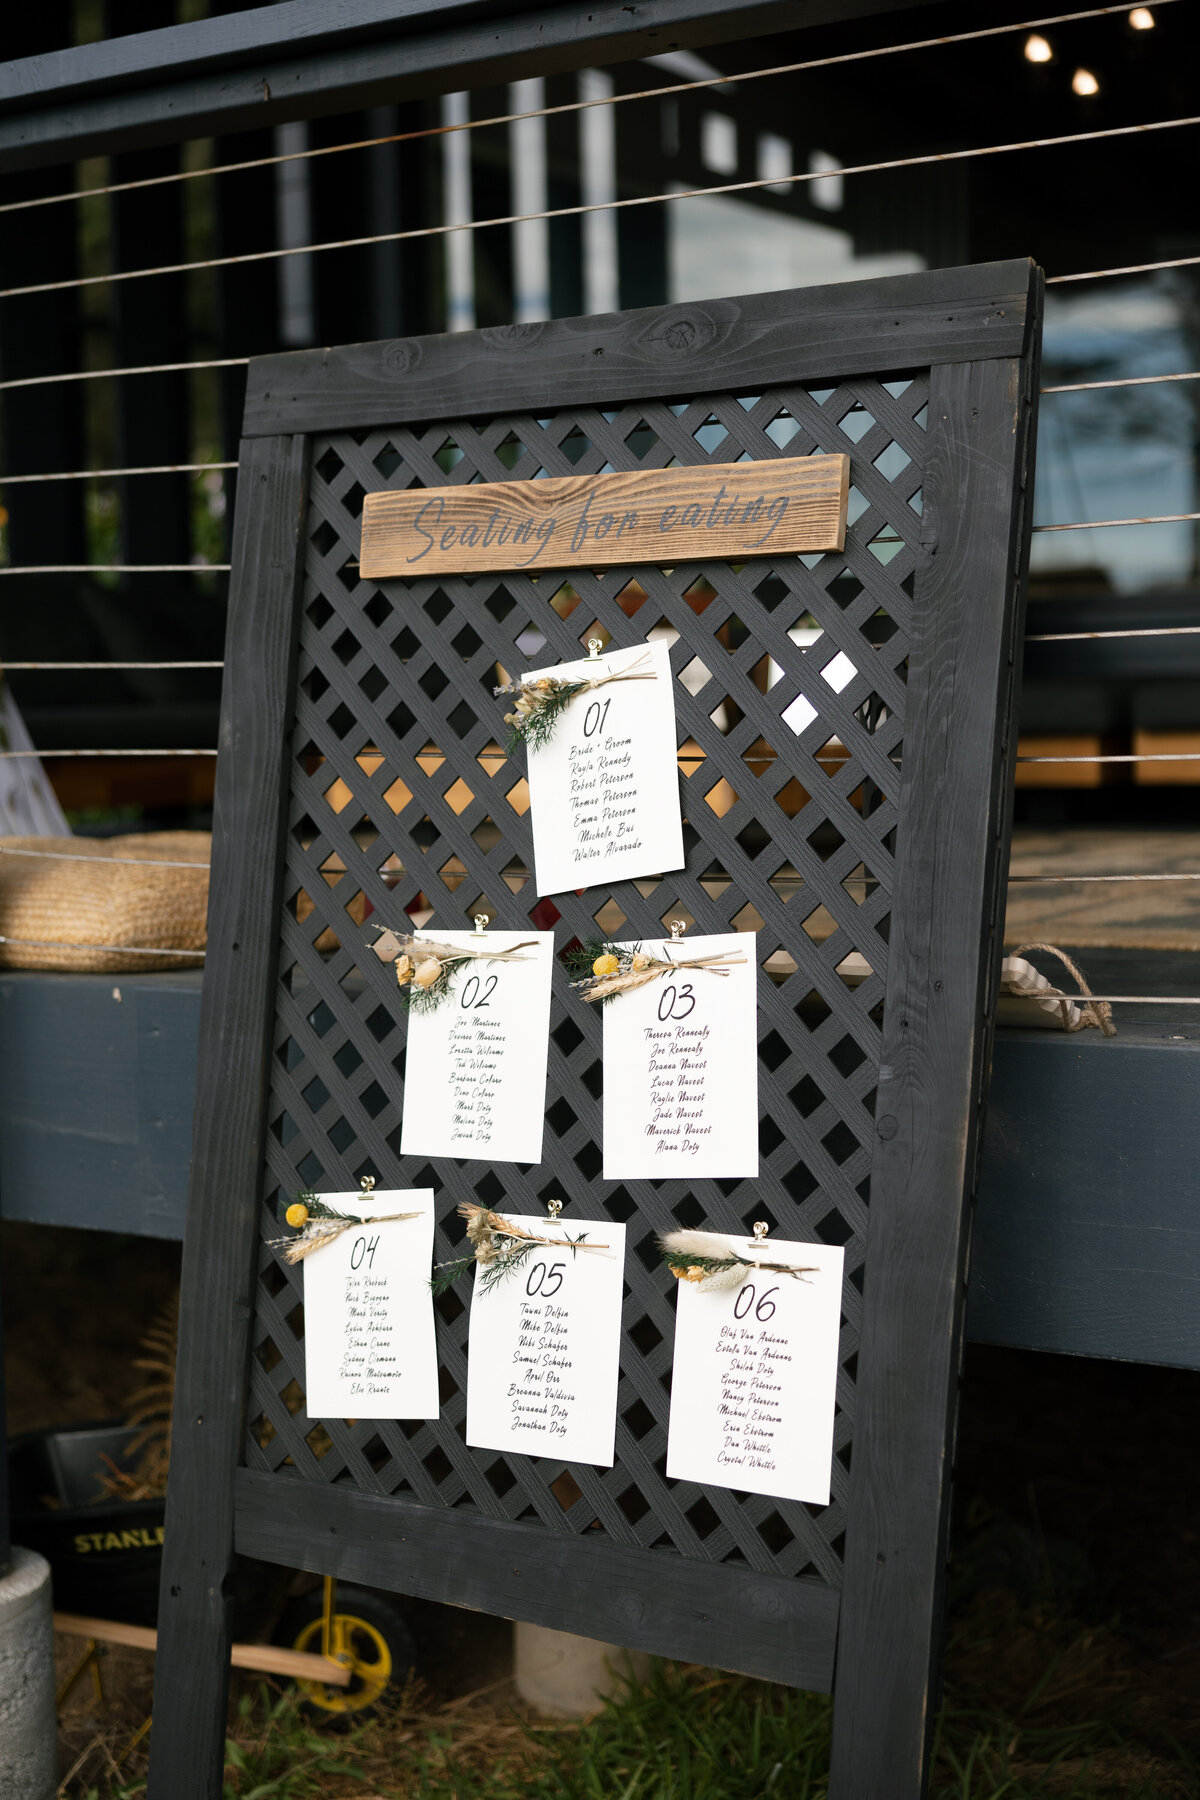 Seating for eating
01
Bride + Groom
Kayla Kennedy
Robert Peterson
Thomas Peterson
Emma Peterson
Michelle Bui
Walter Alvarado
02
Joe Martinez
Desiree Martinez
Loretta Williams
Ted Williams
Barbara Colaro
Dino Colaro
Mark Doty
Melina Doty
Josiah Doty
03
Theresa Kennealy
Joe Kennealy
Deanna Navest
Lucas Navest
Kaylie Navest
Jade Navest
Maverick Navest
Alana Doty
04
Tyler
Nick
Mark Verity
Lydia Ashburn
Ethan Crane
Sydney Clemann
Kainoa Matsumoto
Elie Krantz
05
Tawni Delfin
Mike Delfin
Niki Schafer
Samuel Schafer
April Orr
Breanna Valdivia
Savannah Doty
Jonathan Doty
06
Olaf Van Ardenne
Estela Van Ardenne
Shiloh Doty
George Peterson
Nancy Peterson
Michael Ekstrom
Erin Ekstrom
Dan Whittle
Crystal Whittle
STANLE